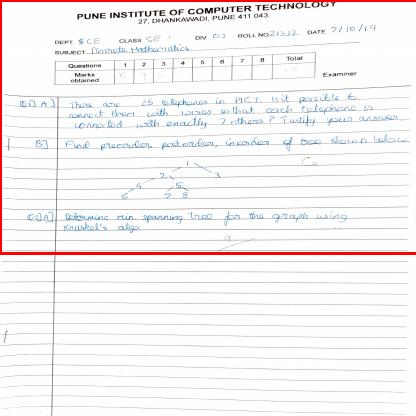 PUNE INSTITUTE OF COMPUTER TECHNOLOGY
27, DHANKAWADI, PUNE 411 043.
DEPT SCE CLASS SE DIV ROLL NO 21332 DATE 7/10/19
SUBJECT Discrete Mathematics
Questions 1 2 3 4 5 6 7 8 Total
Marks obtained
Examiner
Q.1 A] There are 25 telephones in PICT. Is it possible to
connect them with wires so that each telephone is
connected with exactly 7 others? Justify your answer.
B] Find preorder, postorder, inorder of tree shown below
1
2 3
4 5
6 7 8
Q.2 A] Determine min. spanning tree for the graph using
Kruskel's algo